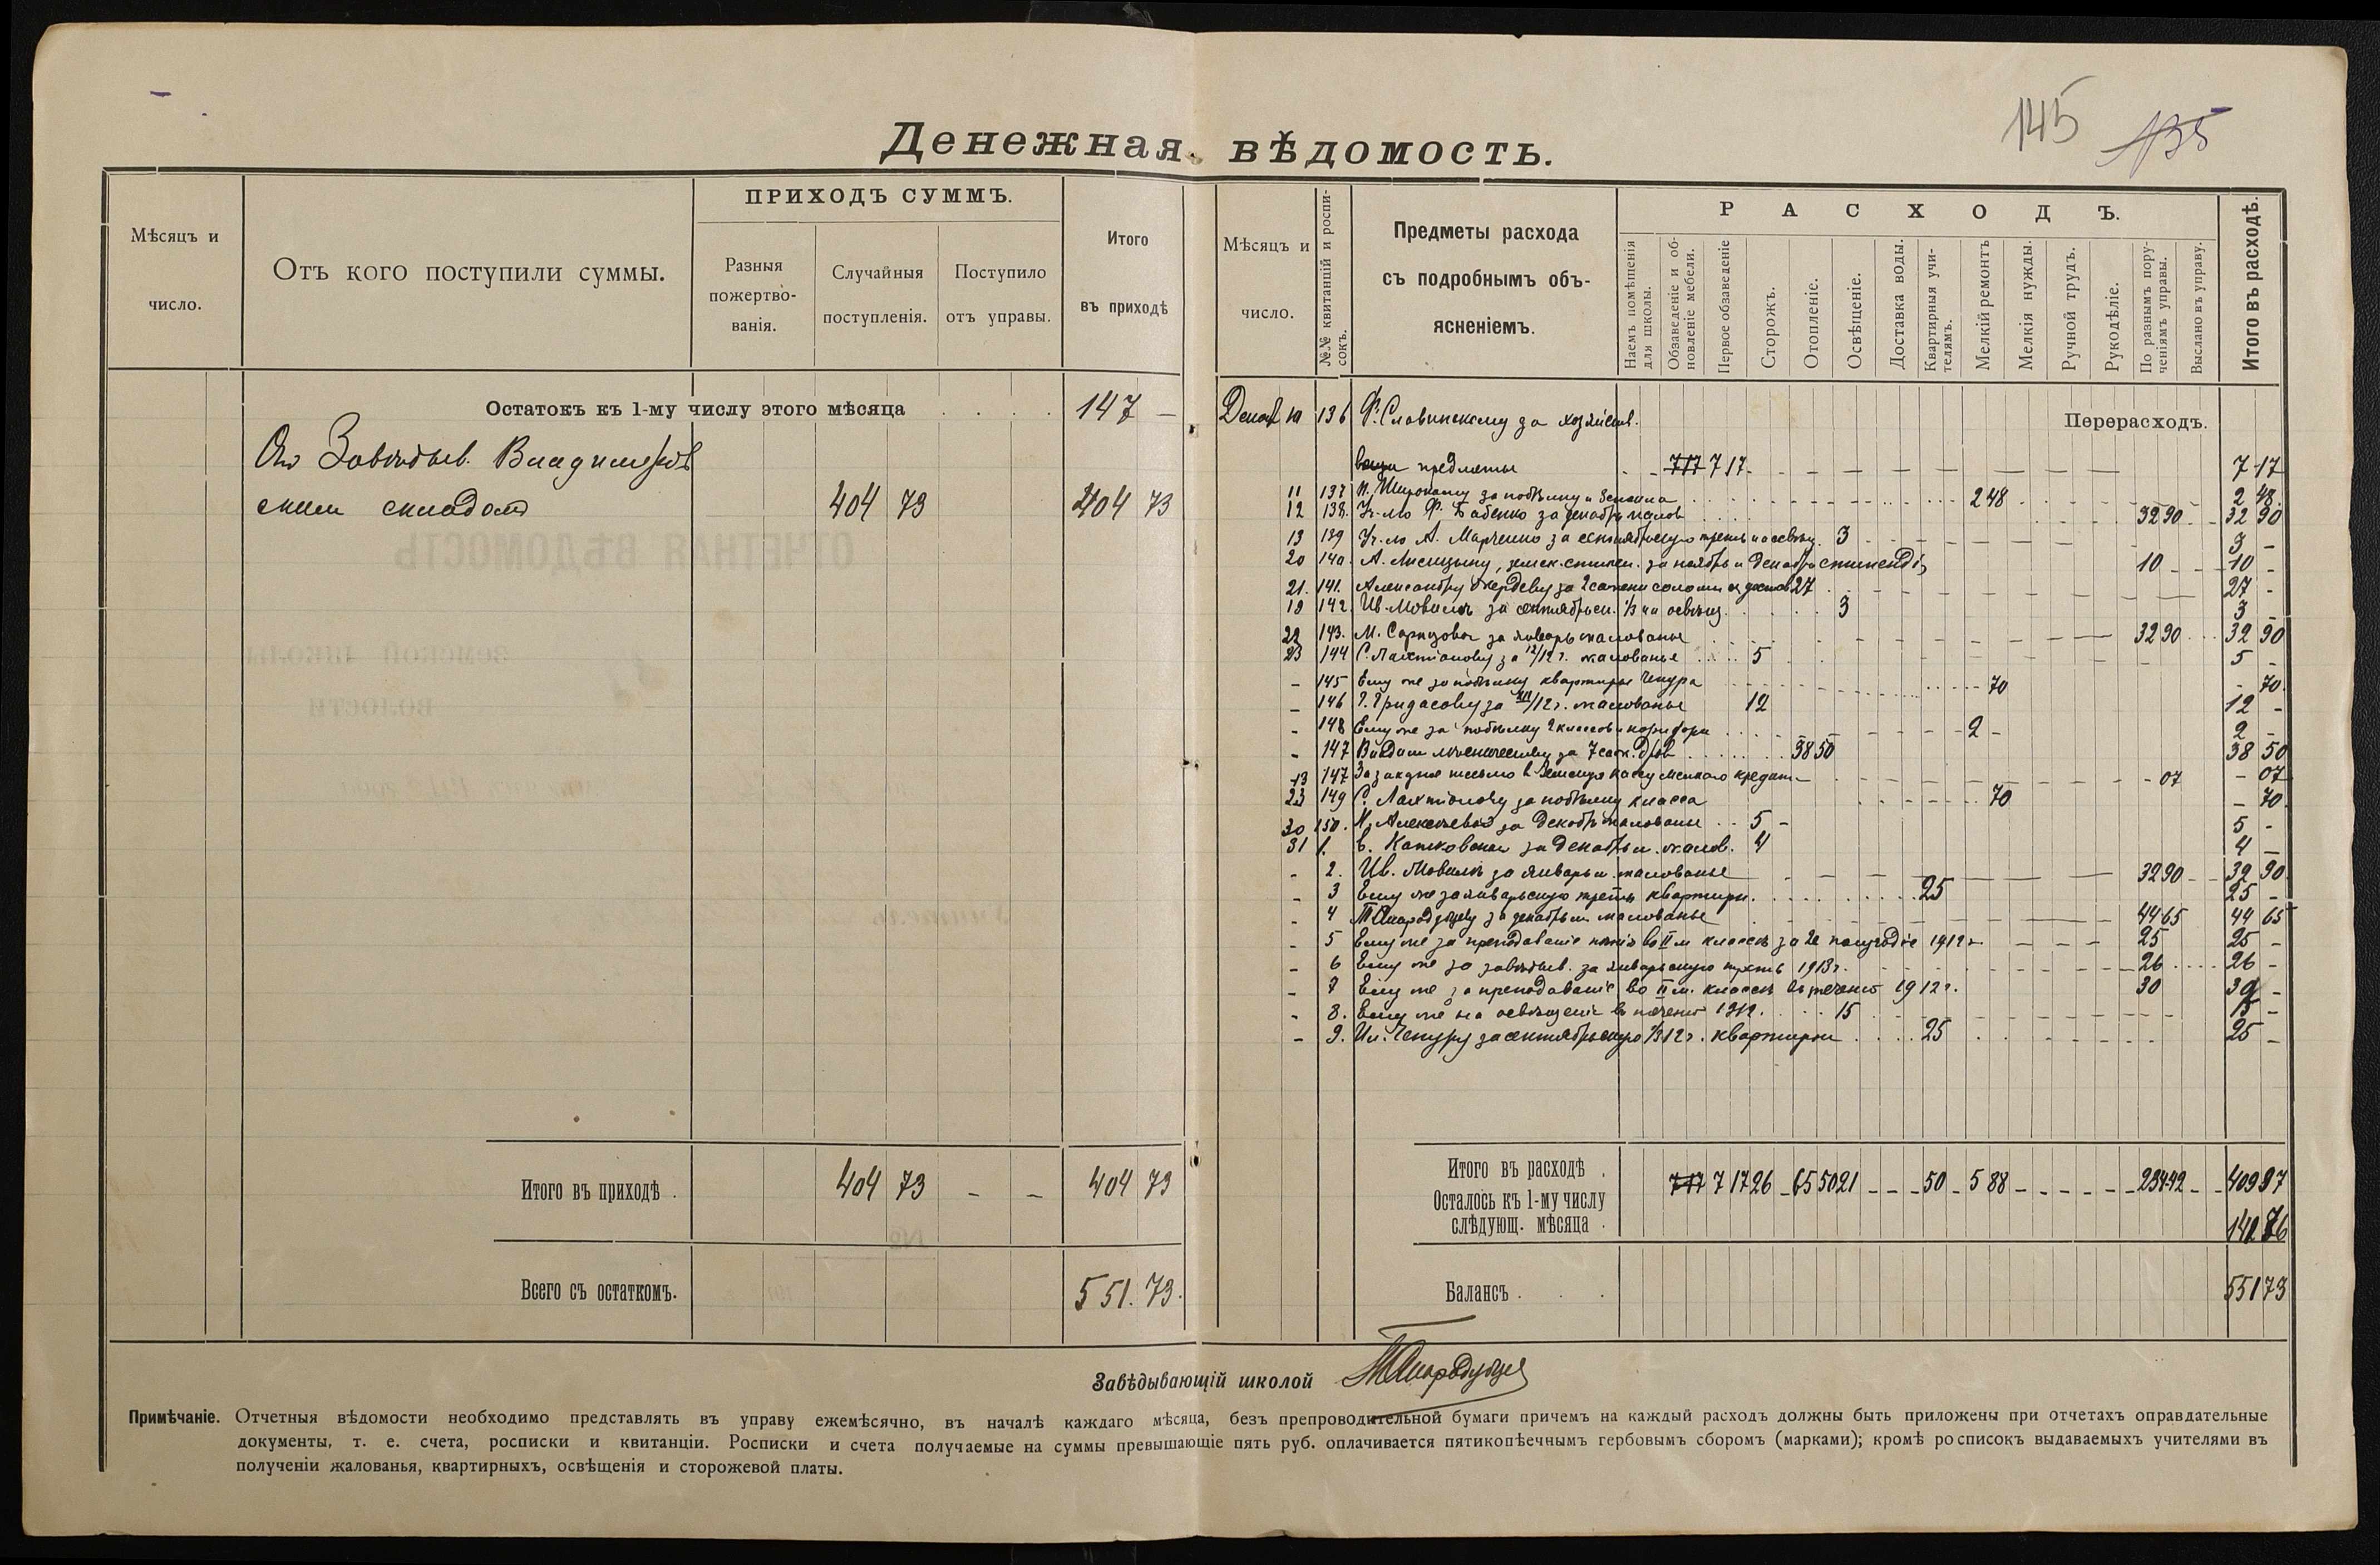 145 135
Денежная вѣдомость.
Мѣсяцъ и число.
Отъ кого поступили суммы.
ПРИХОДЪ СУММЪ.
Разныя пожертво-
ванія.
Случайныя поступленія.
Поступило отъ управы.
Итого въ приходѣ
Остатокъ къ 1-му числу этого мѣсяца . . . . 147 —
От Завѣдыв. Владимиров
ским складом 404 73 404 73
Итого въ приходѣ . 404 73 - - 404 73
Всего съ остаткомъ. 551. 73.
Мѣсяцъ и число.
№№ квитанцій и роспи-
сокъ.
Предметы расхода
съ подробнымъ объ-
ясненіемъ.
РАСХОДЪ.
Наемъ помѣщенія для школы.
Обзаведеніе и об-
новленіе мебели.
Первое обзаведеніе
Сторожъ.
Отопленіе.
Освѣщеніе.
Доставка воды.
Квартирныя учи-
телямъ.
Мелкій ремонтъ
Мелкія нужды.
Ручной трудъ.
Рукодѣліе.
По разнымъ пору-
ченіямъ управы.
Выслано въ управу.
Итого въ расходѣ.
Перерасходъ.
10 136 Ф. Славинскому за хозяйств.
предметы 7 17 7 17
11 137 за побѣлку 2 48 2 48
12 138. Уч-лю Ф. Бабенко за декабрь жалов 32 90 32 90
13 139 Уч-лю А. Марченко за сентябрьскую треть на освѣщ. 3 3 -
20 140. А. Лисицыну, земск. стипен. за ноябрь и декабрь стипендія 10 10 -
21. 141. Александру за 2 сажени соломы 27 27 -
19 142. Ив. Мовилѣ за сентябрьск. 1/3 на освѣщ. 3 3 -
22 143. М. за январь жалованье 32 90 32 90
23 144 С. Лактіонову за 12/12 г. жалованье 5 5 -
- 145 Ему же за побѣлку квартиры Чепура 70 - 70
- 146 Г. Гридасову за /12 г. жалованье 12 12 -
- 148 Ему же за побѣлку 2 классов и коридора 2 - 2 -
- 147 за 7 саж. дров 38 50 38 50
13 147 За закрыт письмо в Земскую кассу мелкаго кредита 07 - 07
23 149 С. Лактіонову за побѣлку класса 70 - 70
30 150. Алексѣевой за декабрь жалованье 5 - 5 -
31 1. за декабрьск. жалов. 4 4 -
- 2. Ив. Мовилѣ за январьск. жалованье 32 90 32 90
- 3 Ему же за январьскую треть квартиры. 25 25 -
- 4 за декабрьск. жалованье 44 65 44 65
- 5 Ему же за преподаваніе пѣнія во II м классѣ за 2е полугодіе 1912 г. 25 25 -
- 6 Ему же за завѣдыв. за январьскую треть 1913 г. 26 26 -
- 7 Ему же за преподаваніе во II м. классѣ в теченіе 1912 г. 30 30 -
- 8. Ему же на освѣщеніе в теченіе 1912. 15 15 -
- 9. Ил. Чепуру за сентябрьскую 1/3 12 г. квартиры 25 25 -
Итого въ расходѣ . 7 17 26 - 65 50 21 - - - 50 - 5 88 - - - - - - 234 42 - - 409 97
Осталось къ 1-му числу
слѣдующ. мѣсяца . 141 76
Балансъ . . . 551 73
Завѣдывающій школой
Примѣчаніе. Отчетныя вѣдомости необходимо представлять въ управу ежемѣсячно, въ началѣ каждаго мѣсяца, безъ препроводительной бумаги причемъ на каждый расходъ должны быть приложены при отчетахъ оправдательные
документы, т. е. счета, росписки и квитанціи. Росписки и счета получаемые на суммы превышающіе пять руб. оплачивается пятикопѣечнымъ гербовымъ сборомъ (марками); кромѣ росписокъ выдаваемыхъ учителями въ
полученіи жалованья, квартирныхъ, освѣщенія и сторожевой платы.